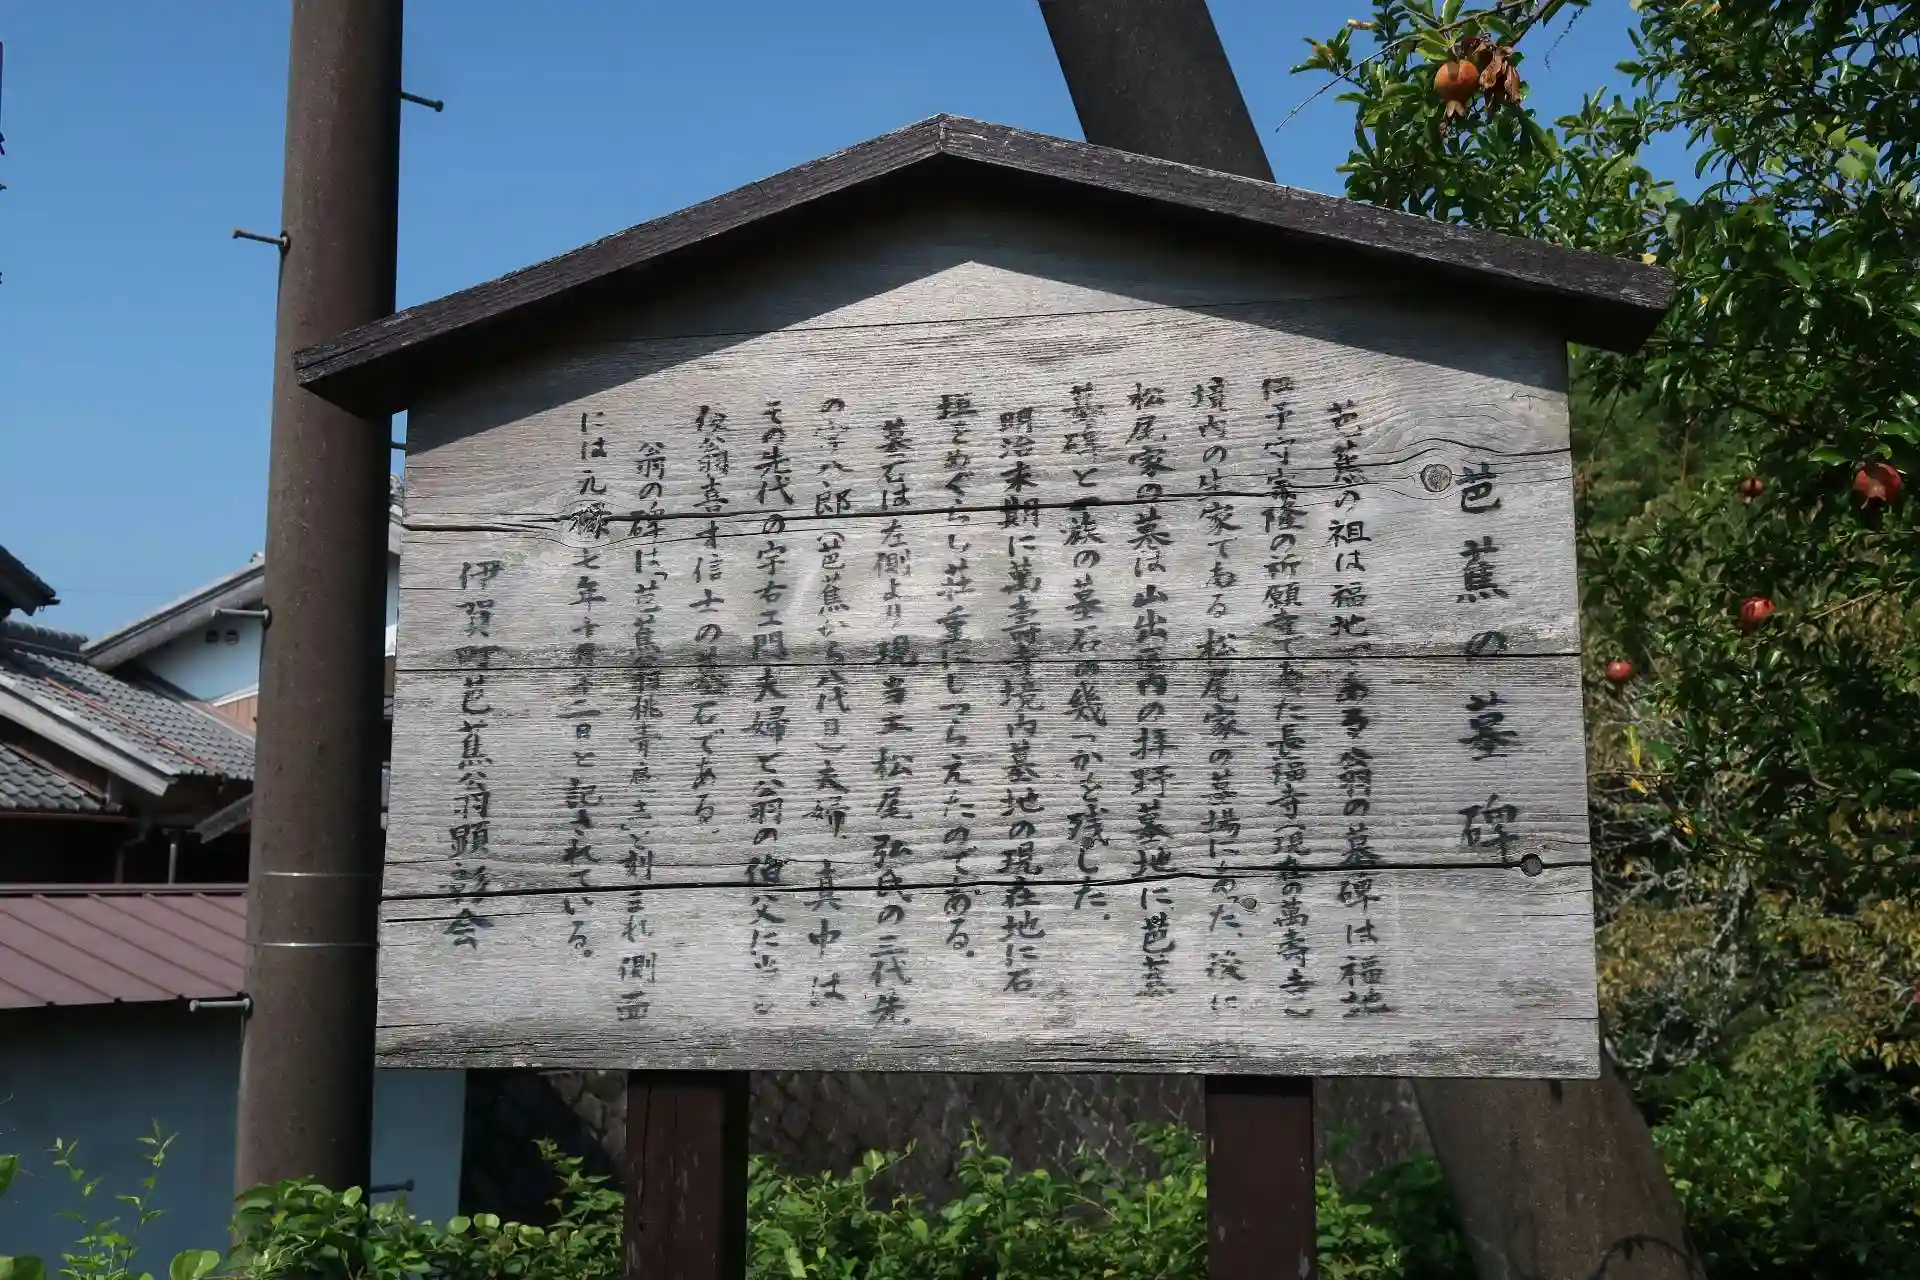 芭蕉の墓碑
芭蕉の祖は福地である公翁の墓碑は福地
伊予守宗隆の祈願寺であった長福寺(現在の萬寿寺)
境内の生家である松尾家の墓場にあった、後に
松尾家の墓は山出区内の拝野墓地に芭蕉
墓碑と一族の墓石の幾つかを残した.
明治末期に萬寿寺境内墓地の現在地に石
垣をめぐらし荘重にしつらえたのである。
墓石は左側より現当主松尾弘氏の三代先
の宇八郎(芭蕉から八代目)夫婦、真中は
その先代の宇右エ門夫婦で公翁の伯父に当る
俊公翁喜才信士の墓石である.
公翁の碑は「芭蕉翁桃青居士」と刻まれ側面
には元禄七年十月十二日と記されている。
伊賀町芭蕉公翁顕彰会